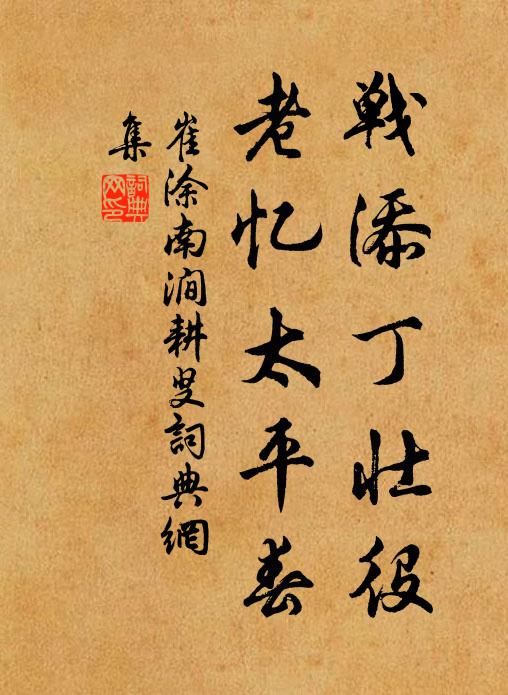 戦添丁壮役
老忆太平春
崔涂南澗耕叟詞典網
集
詞典
网印